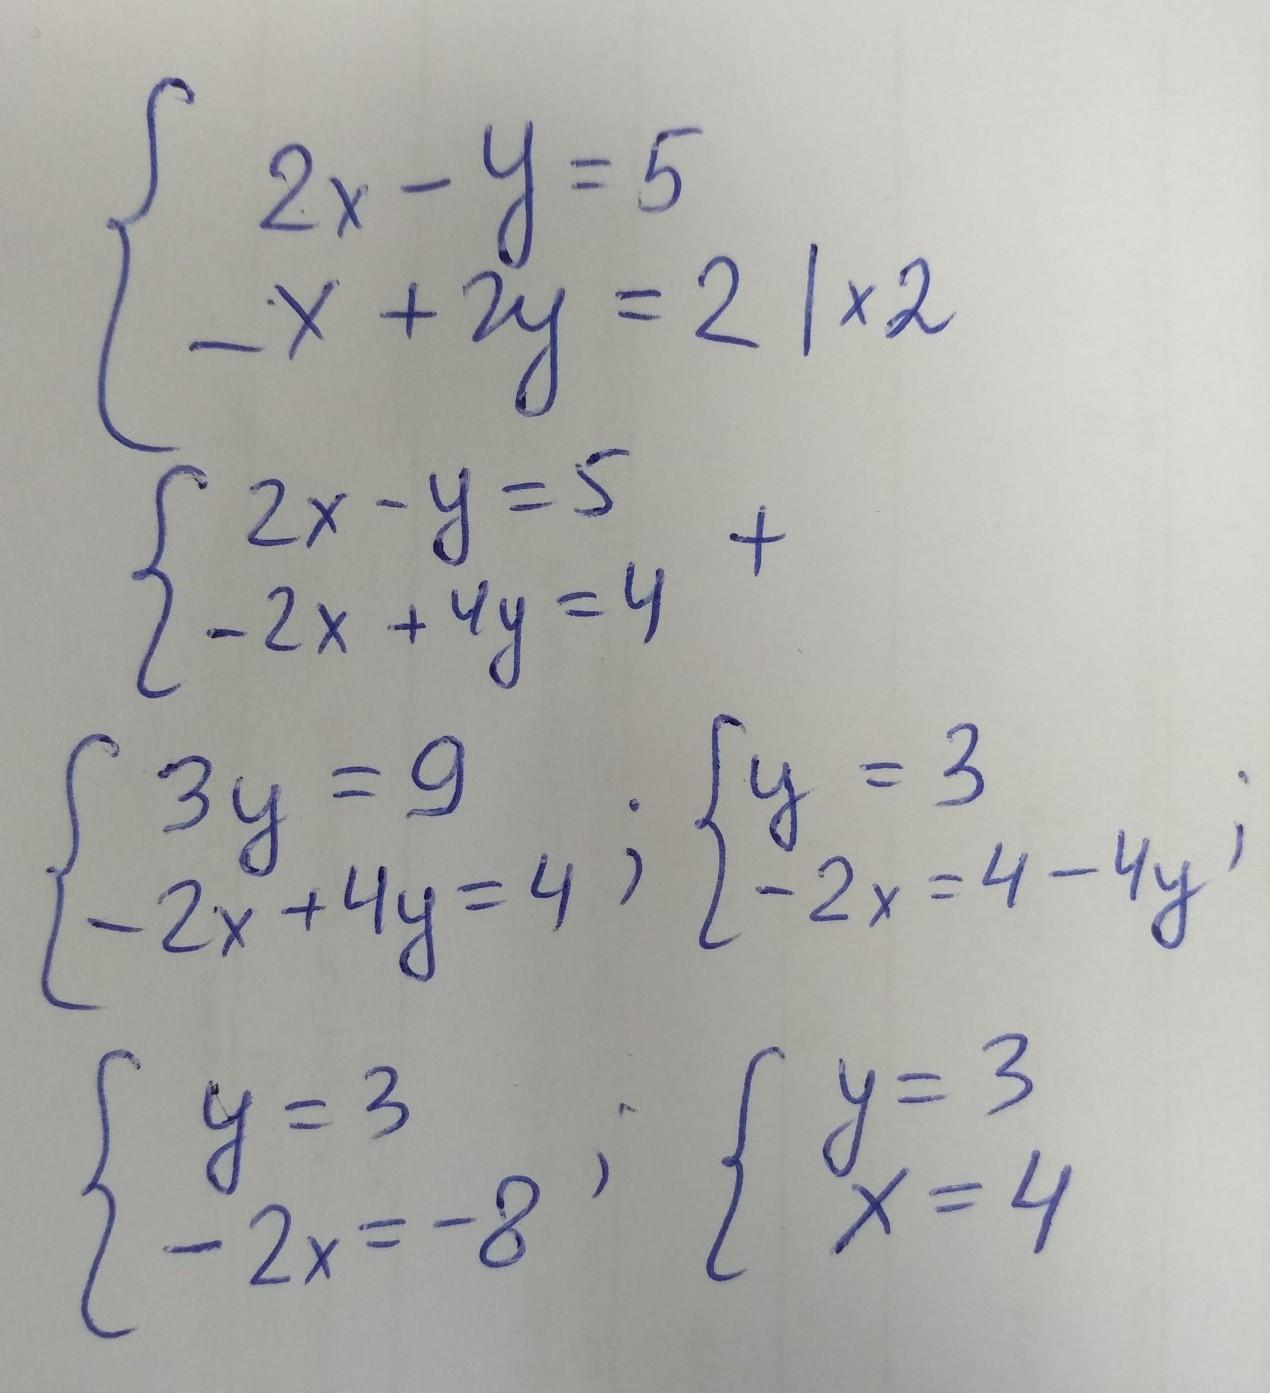 2x - y = 5
-x + 2y = 2 | × 2
2x - y = 5
+
-2x + 4y = 4
3y = 9 ; y = 3 ;
-2x + 4y = 4 -2x = 4 - 4y
y = 3 ; y = 3
-2x = -8 x = 4